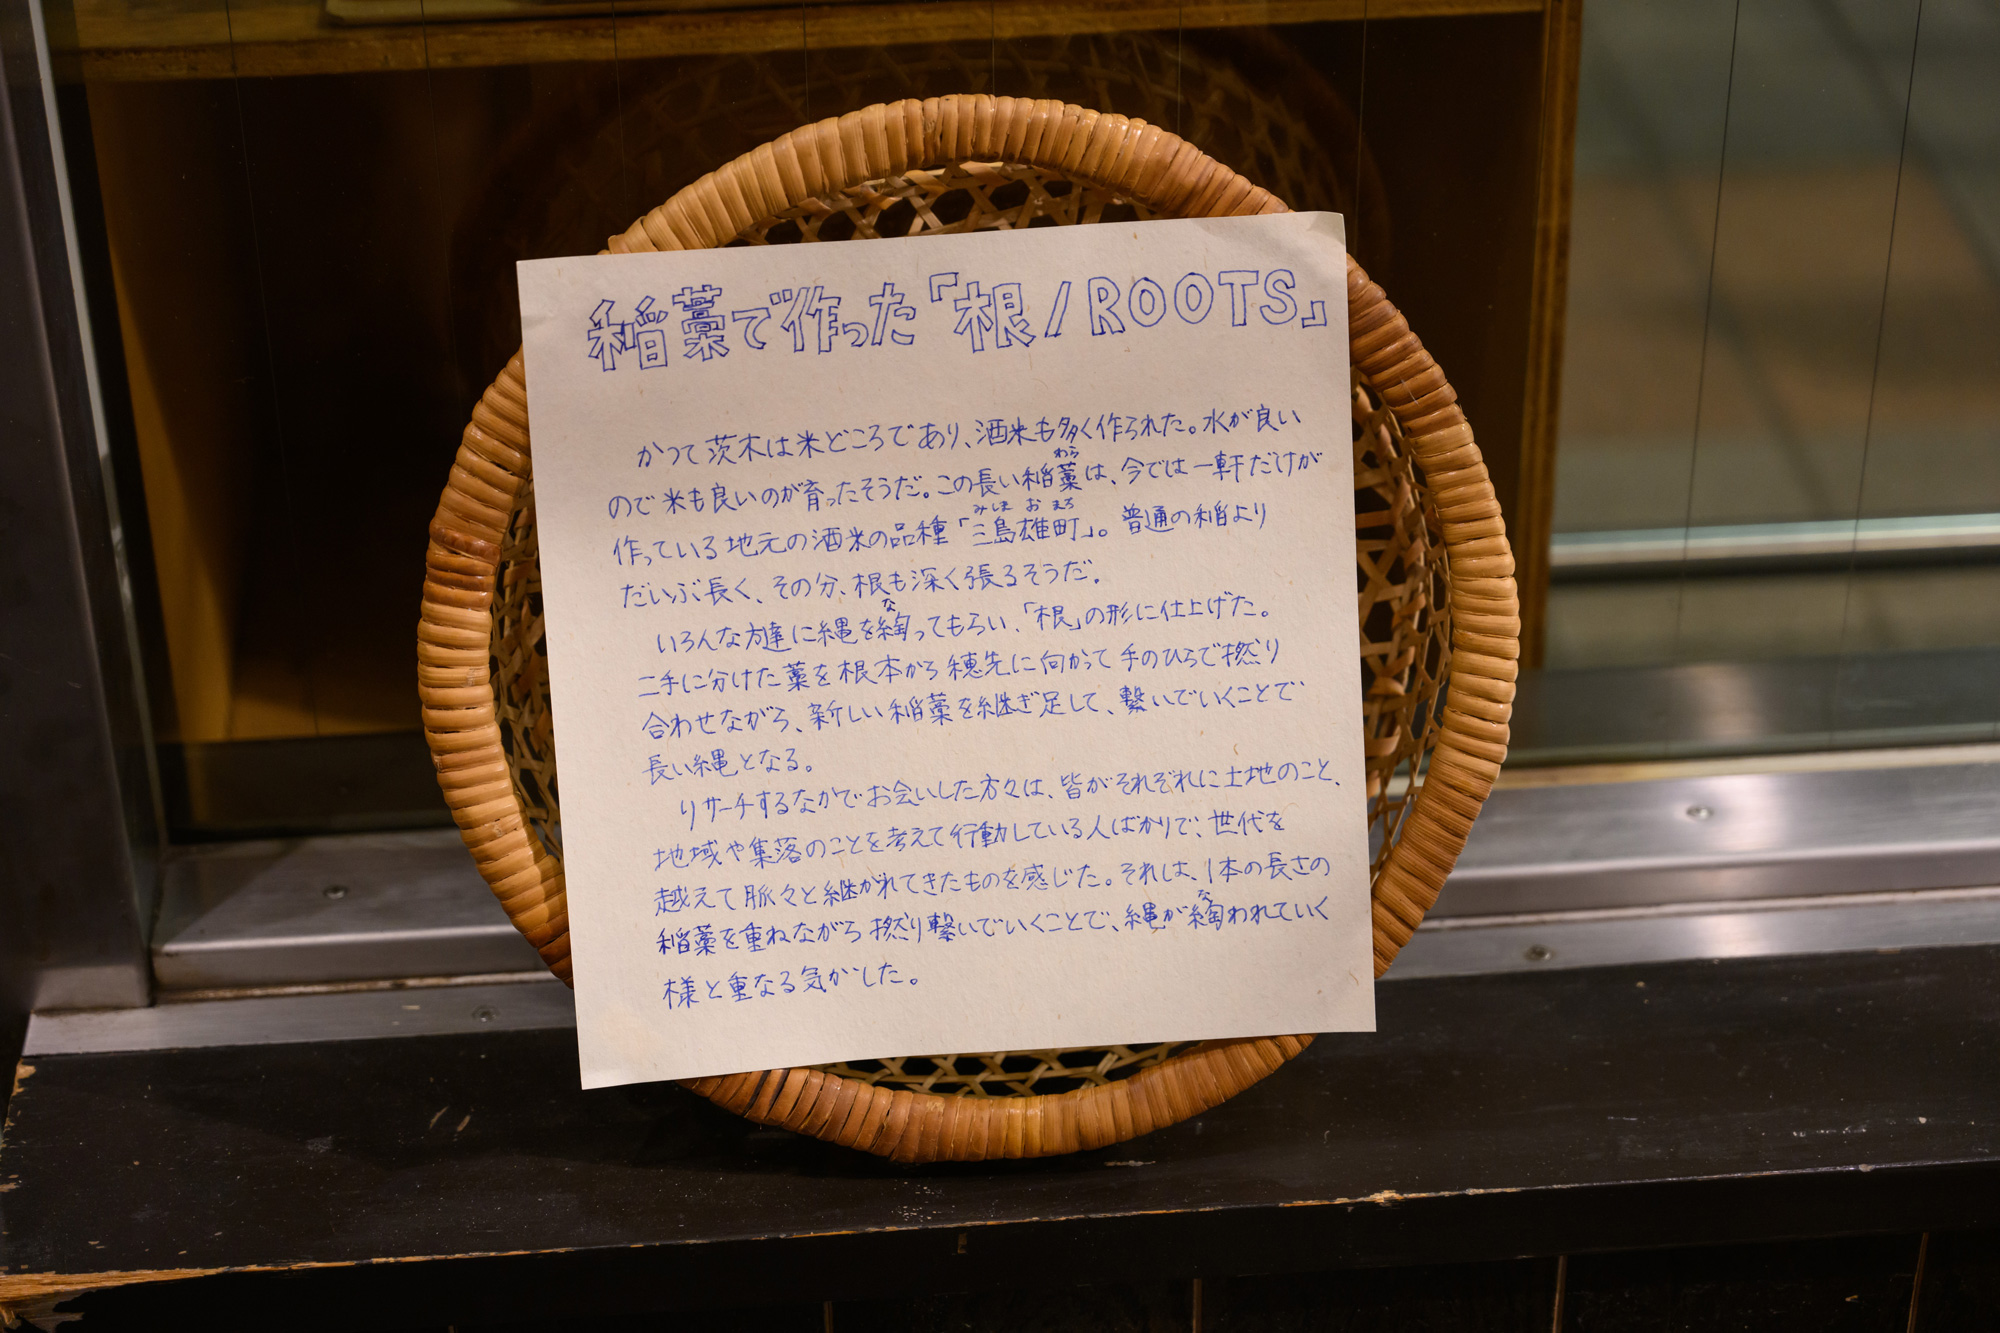 稲藁で作った「根/ROOTS」
かつて茨木は米どころであり、酒米も多く作られた。水が良い
ので米も良いのが育ったそうだ。この長い稲藁は、今では一軒だけが
作っている地元の酒米の品種「三島雄町」。普通の稲より
だいぶ長く、その分、根も深く張るそうだ。
いろんな方達に縄を綯ってもらい、「根」の形に仕上げた。
二手に分けた藁を根本から穂先に向かって手のひらで撚り
合わせながら、新しい稲藁を継ぎ足して、繋いでいくことで
長い縄となる。
リサーチするなかでお会いした方々は、皆がそれぞれに土地のこと、
地域や集落のことを考えて行動している人ばかりで、世代を
越えて脈々と継がれてきたものを感じた。それは、1本の長さの
稲藁を重ねながら撚り繋いでいくことで、縄が綯われていく
様と重なる気がした。